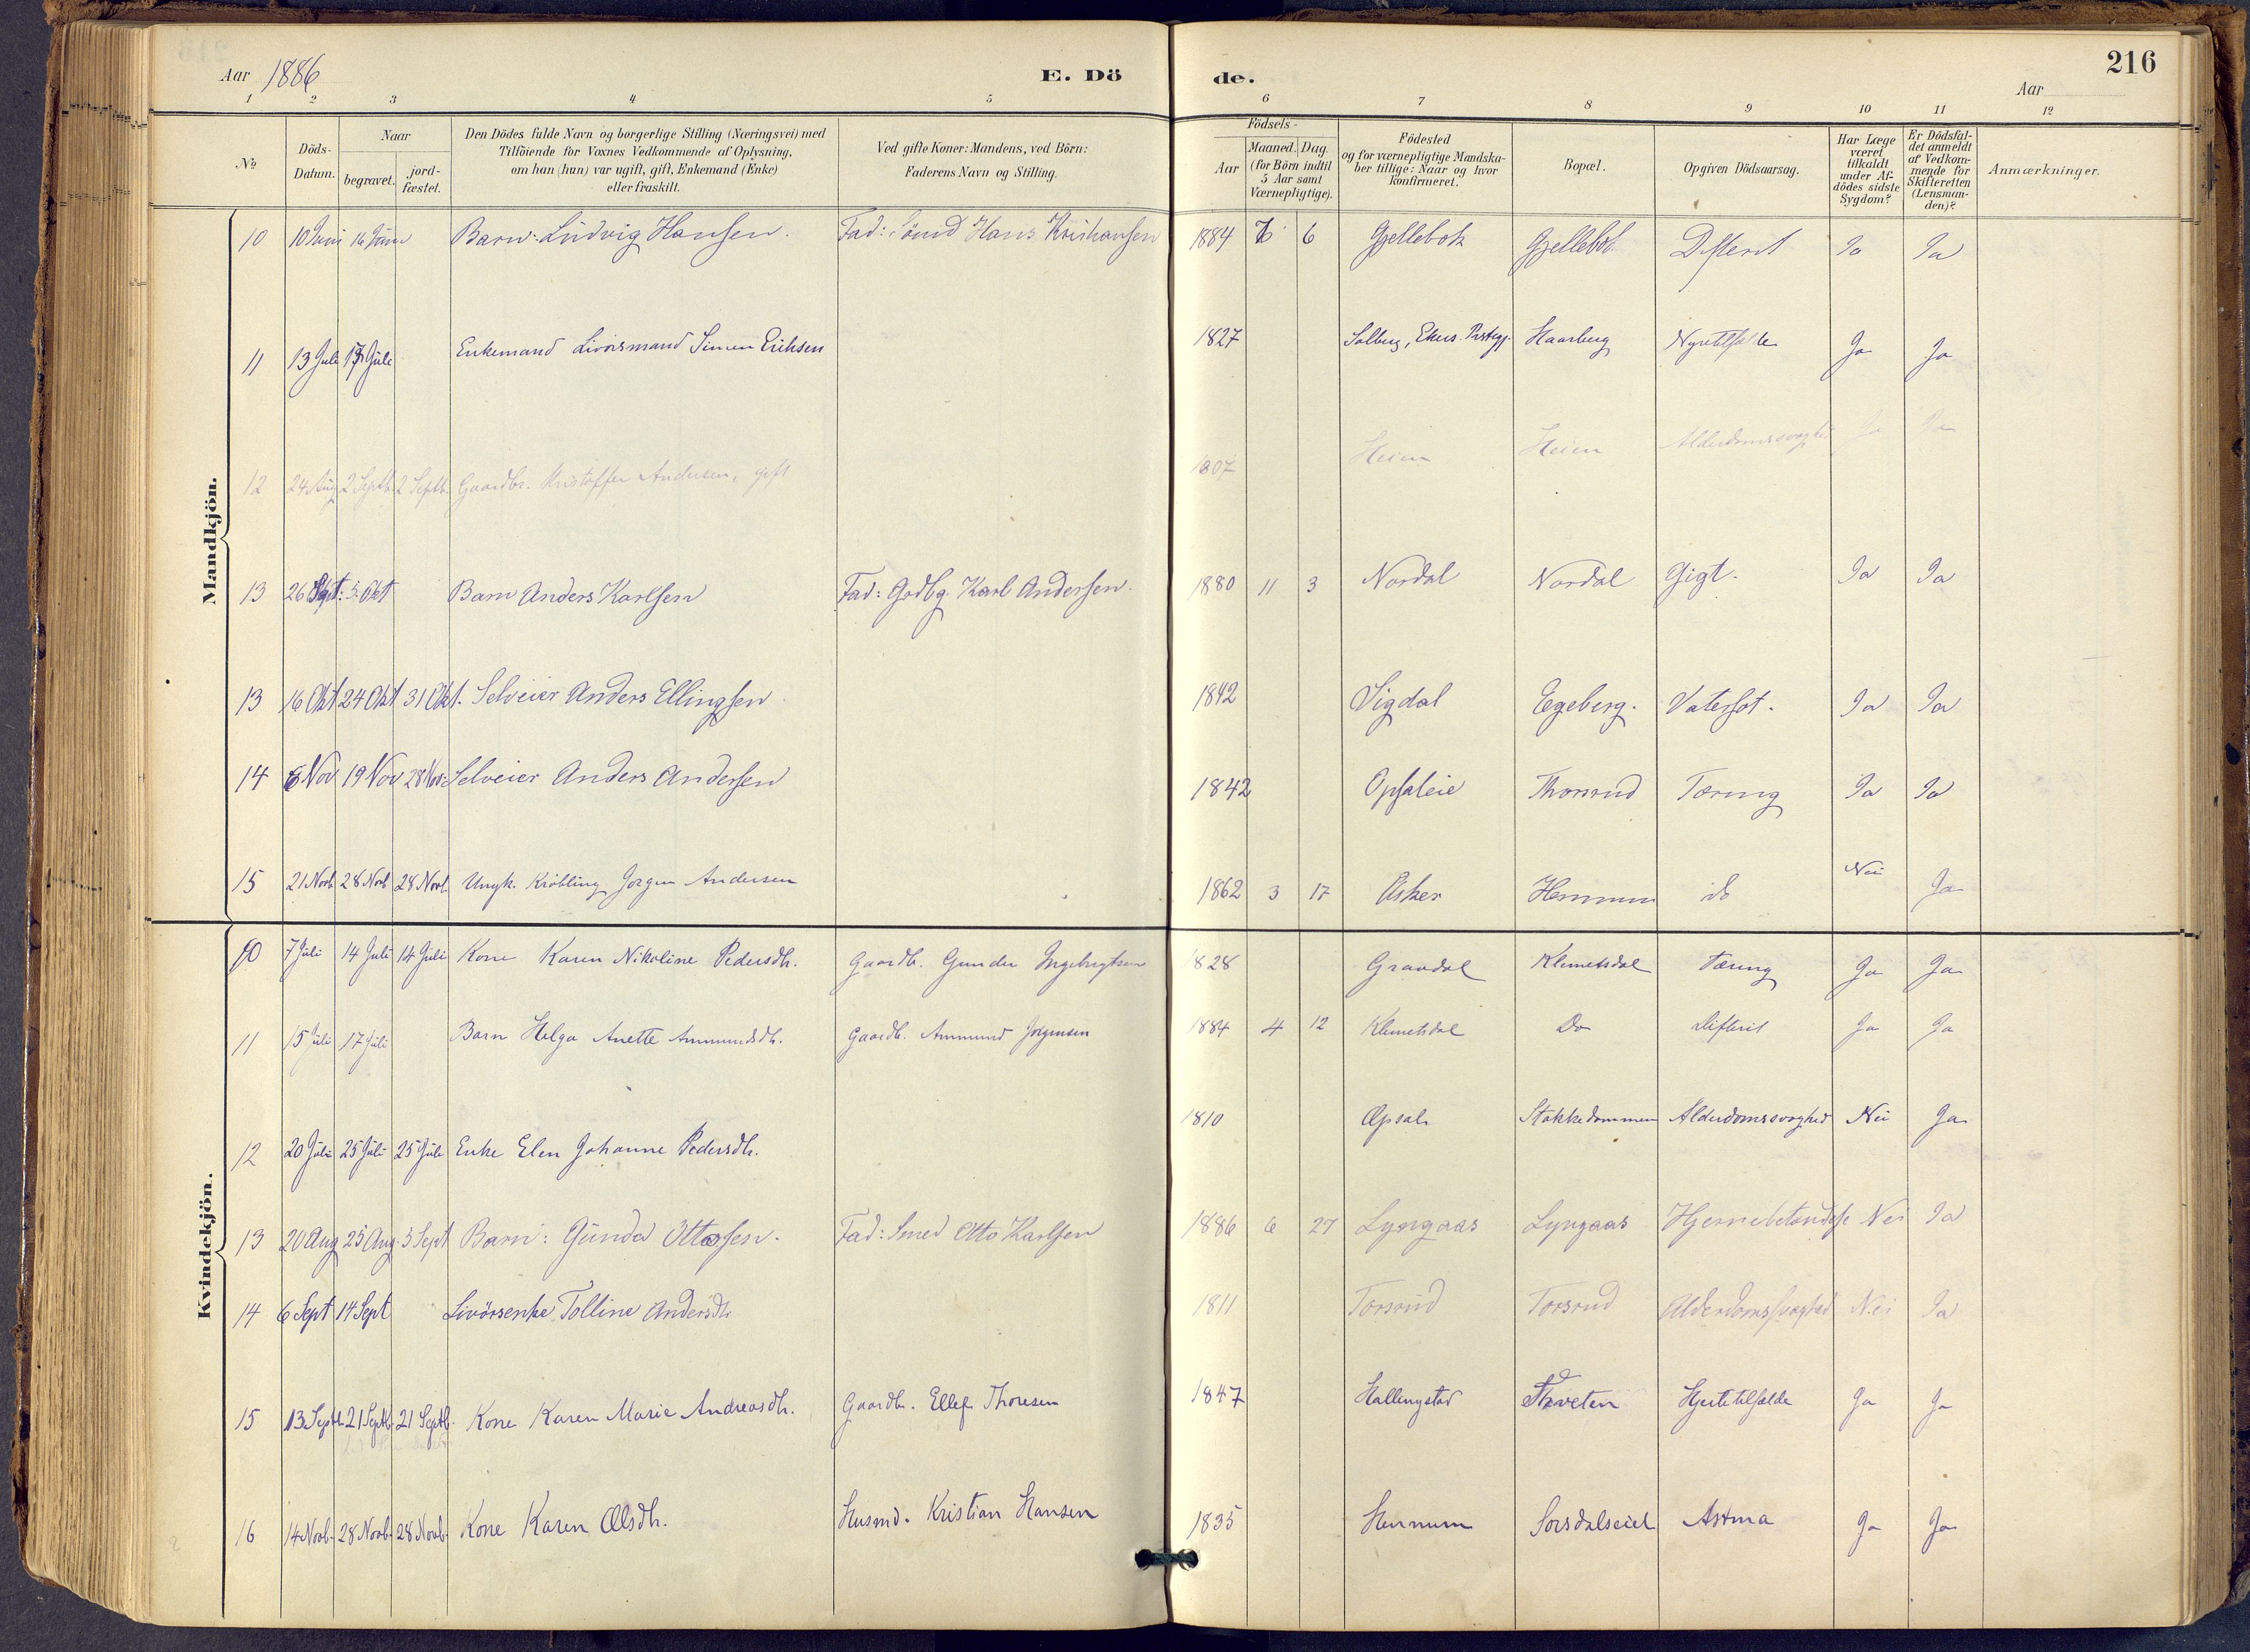 216
Aar 1886
E. Dö
de.
Aar
1 2 3 4 5 6 7 8 9 10 11 12
No
Döds-Datum.
Naar
begravet.
jord-fæstet.
Den Dödes fulde Navn og borgerlige Stilling (Næringsvei) med
Tilföiende for Voxnes Vedkommende af Oplysning,
om han (hun) var ugift, gift, Enkemand (Enke)
eller fraskilt.
Ved gifte Koner: Mandens, ved Börn:
Faderens Navn og Stilling.
Födsels-
Aar
Maaned. Dag.
(for Börn indtil
5 Aar samt
Værnepligtige).
Födested
og for værnepligtige Mandska-
ber tillige: Naar og hvor
konfirmeret.
Bopæl.
Opgiven Dödsaarsag.
Har Læge
været
tilkaldt
under Af-
dödes sidste
Sygdom?
Er Dödsfal-
det anmeldt
af Vedkom-
mende for
Skifteretten
(Lensman-
den)?
Anmærkninger.
Mandkjön.
10 10 Juni 16 Juni Barn: Ludvig Hansen. Fad: Hans Kristiansen 1884 6 Gjellebek Gjellebek Difterit Ja Ja
11 13 Juli 17 Juli Enkemand Livörsmand Simen Eriksen 1827 Solberg, Ekers Prstgj. Haarberg Nyretilfælde Ja Ja
12 24 Aug 2 Septb. 2 Septb. Gaardbr. Kristoffer Andersen, gift 1807 Heien Heien Alderdomssvaghed Ja Ja
13 26 Sept: 3 Okt Barn Anders Karlsen Fad: Gdbg. Karl Andersen. 1880 11 3 Nordal Nordal Gigt. Ja Ja
13 16 Okt 24 Okt 31 Okt. Selveier Anders Ellingsen 1842 Sigdal Egeberg. Vatersot. Ja Ja
14 6 Nov 19 Nov 28 Nov: Selveier Anders Andersen 1842 Opsaleie Thorsrud Tæring Ja Ja
15 21 Novb. 28 Novb 28 Novb. Ungk. Kröbling Jorgen Andersen 1862 3 17 Asker Hennum do Nei Ja
Kvindekjön.
10 7 Juli 14 Juli 14 Juli Kone Karen Nikoline Pedersdtr. Gaardb. Gunder Ingebrigtsen 1828 Gravdal Klemetsdal Tæring Ja Ja
11 15 Juli 17 Juli Barn Helga Anette Ammundsdtr. Gaardb. Ammund Jorgensen 1884 4 12 Klemetsdal Do Difterit Ja Ja
12 20 Juli 25 Juli 25 Juli Enke Elen Johanne Pedersdtr. 1810 Opsal Stokkedammen Alderdomssvaghed Nei Ja
13 20 Aug 25 Aug. 5 Sept Barn: Gunda Ottosen. Fad: Smed Otto Karlsen 1886 6 27 Lyngaas Lyngaas Hjernebetændelse Nei Ja
14 6 Sept 14 Sept Livörsenke Tolline Andersdtr 1811 Torsrud Torsrud Alderdomssvaghed Nei Ja
15 13 Septb. 21 Septb. 21 Septb. Kone Karen Marie Andreasdtr. Gaardbr. Ellef Thoresen 1847 Hallengstad Tveten Hjertetilfælde Ja Ja
16 14 Novb. 28 Novb. 28 Novb. Kone Karen Olsdtr. Husmd. Kristian Hansen 1835 Hennum Sorsdalseiet Astma Ja Ja